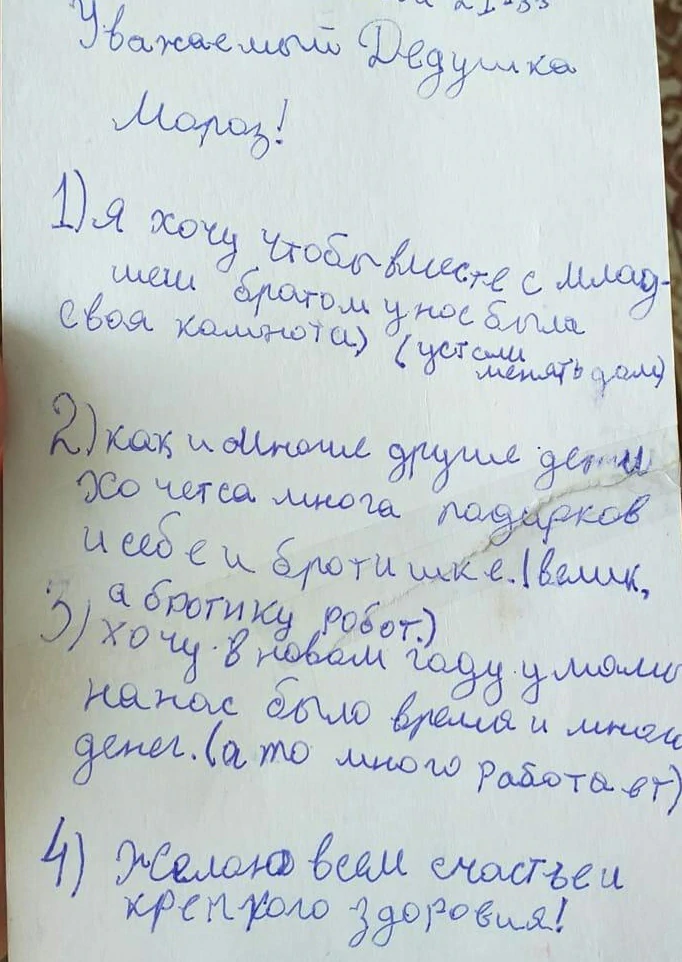 Уважаемый Дедушка
Мороз!
1) я хочу чтобы вместе с млад-
шем братом у нас была
своя комнота) (устали
менять дом)
2) как и многие другие дети
хочетса многа падарков
и себе и братишке. (велик,
а братику робот.)
3) хочу в новом гаду у мамы
на нас было время и много
денег. (а то много работает)
4) Желаю всем счастье и
крепкого здоровия!